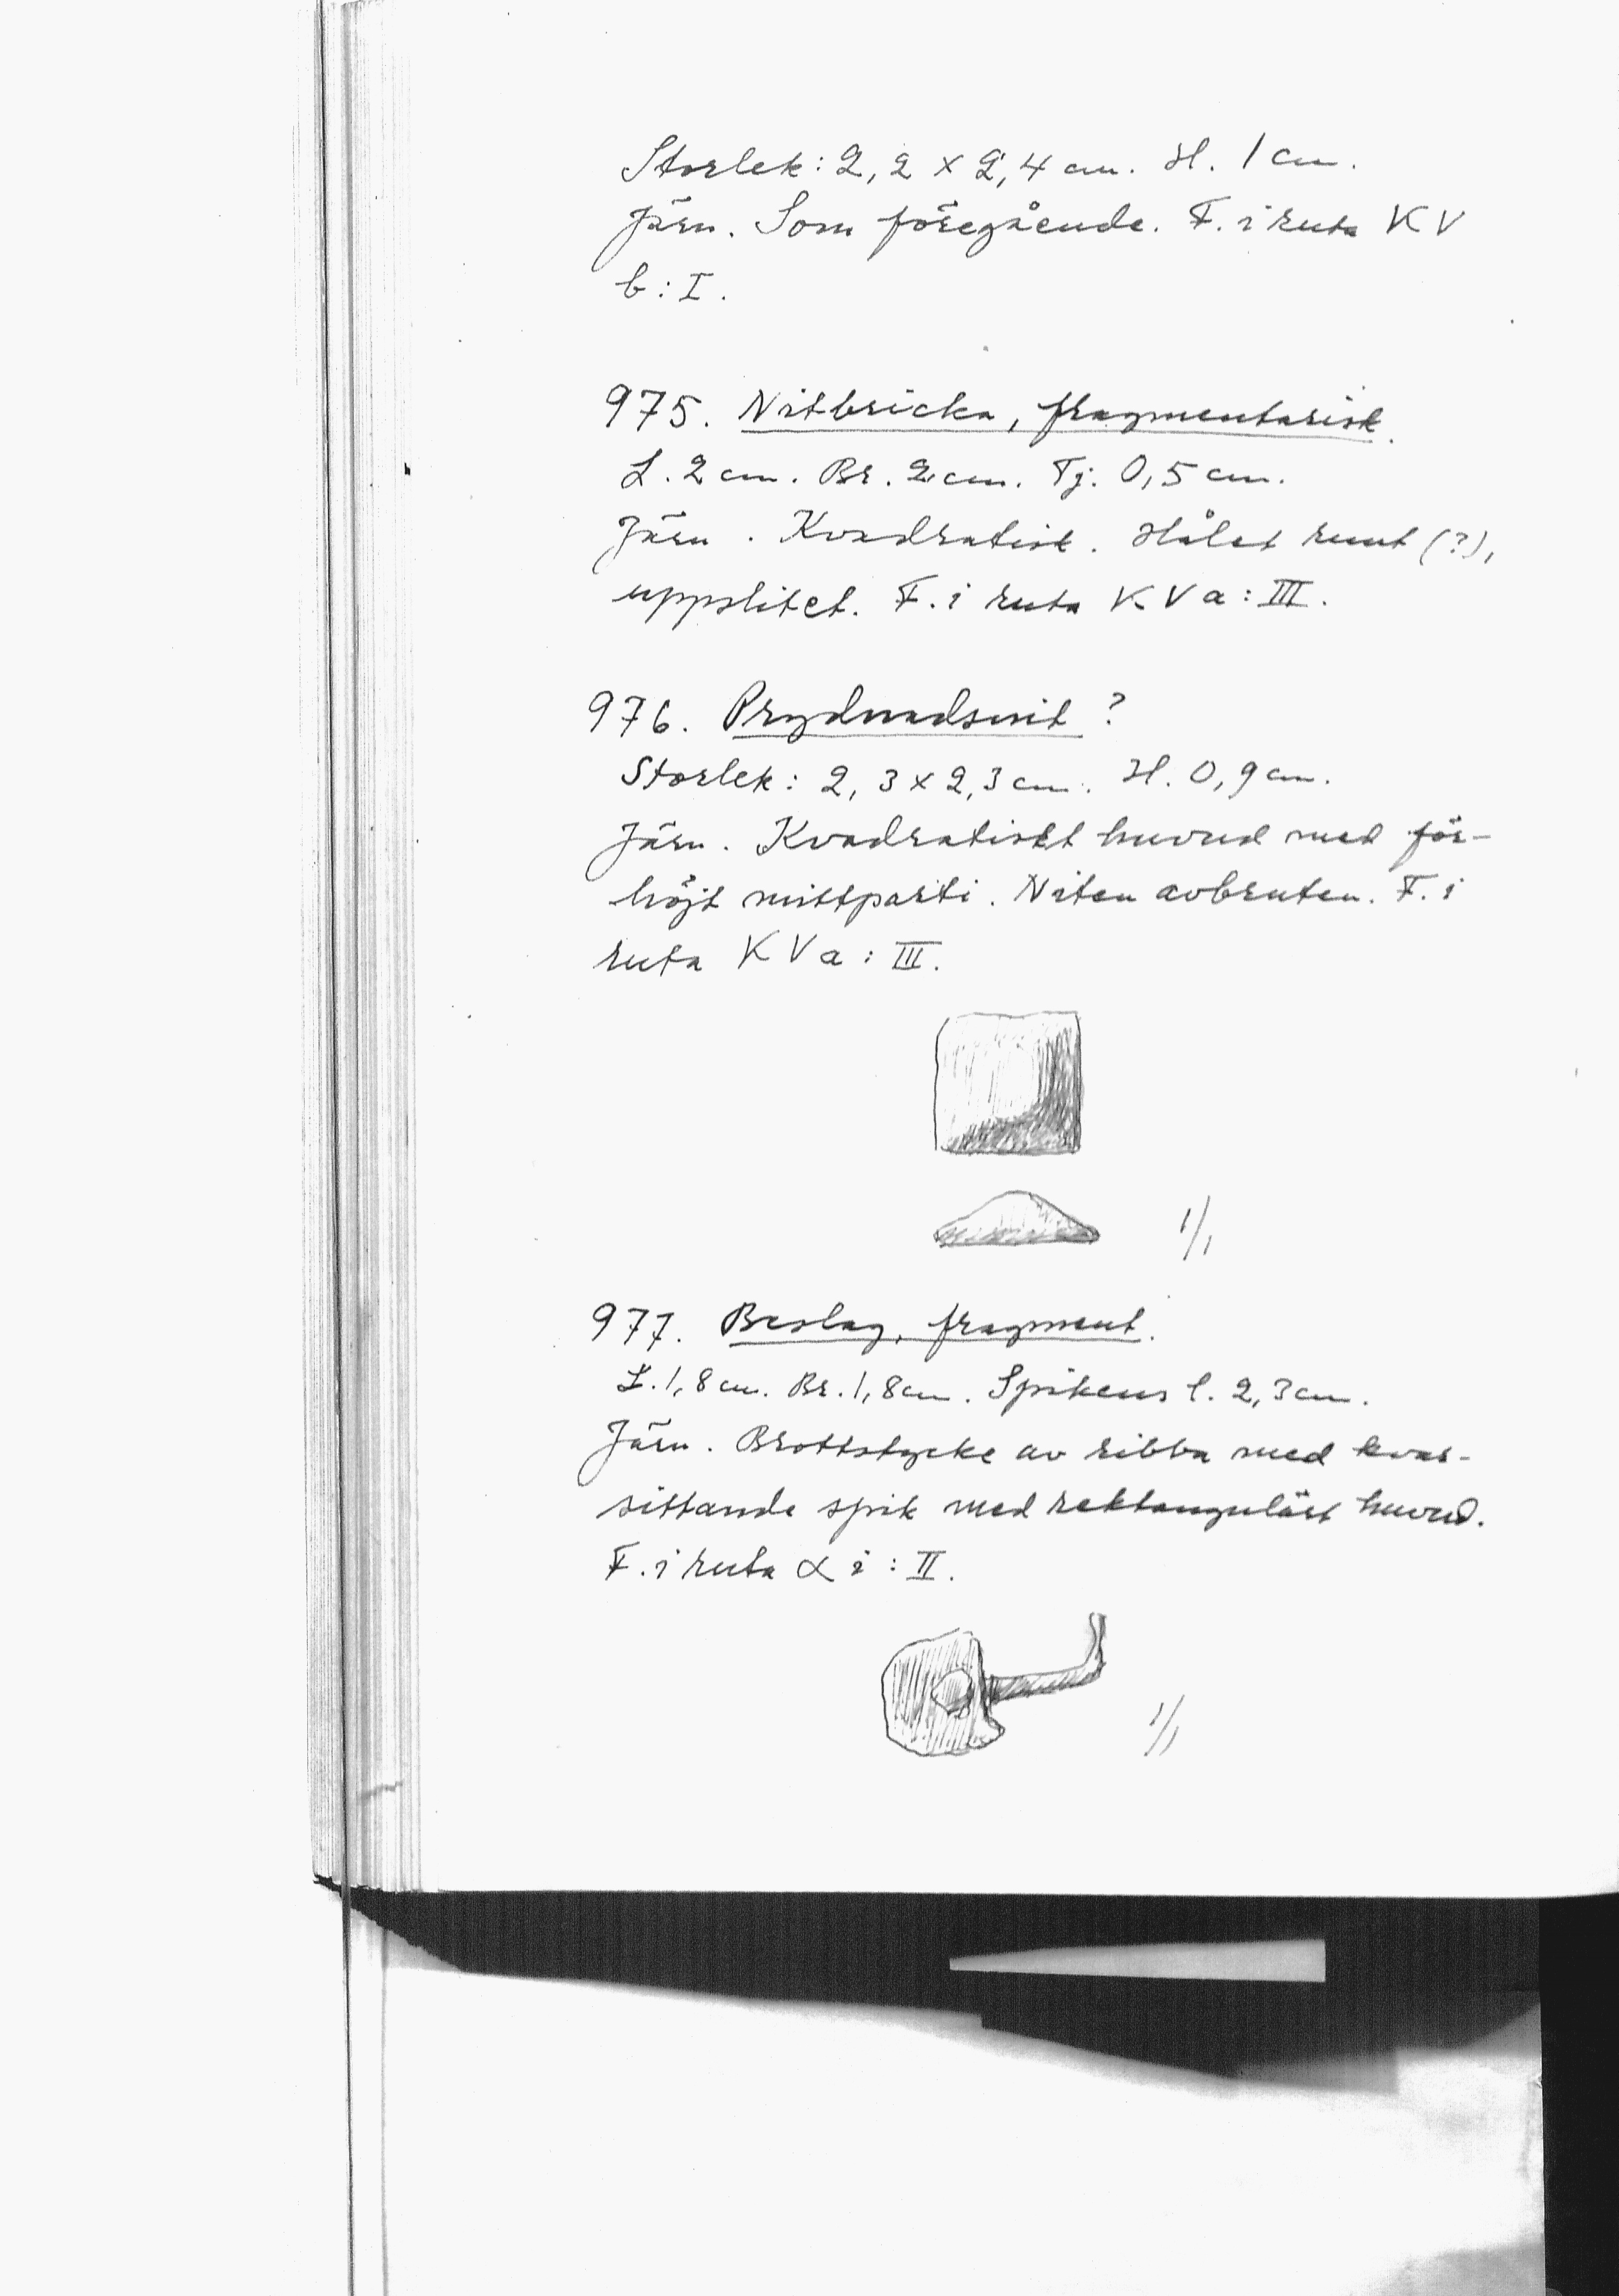 Storlek: 2,2 x 2,4 cm. H. 1 cm.
Järn. Som föregående. F. i ruta KV
b: I.
975. Nitbricka, fragmentarisk.
L. 2 cm. Br. 2 cm. Tj. 0,5 cm.
Järn. Kvadratisk. Hålet runt (?),
uppslitet. F. i ruta KV a: III.
976. Prydnadsnit?
Storlek: 2,3 x 2,3 cm. H. 0,9 cm.
Järn. Kvadratiskt huvud med för-
höjt mittparti. Niten avbruten. F. i
ruta KV a: III.
1/1
977. Beslag, fragment.
L. 1,8 cm. Br. 1,8 cm. Spikens l. 2,3 cm.
Järn. Brottstycke av ribba med kvar-
sittande spik med rektangulärt huvud.
F. i ruta α i: II.
1/1